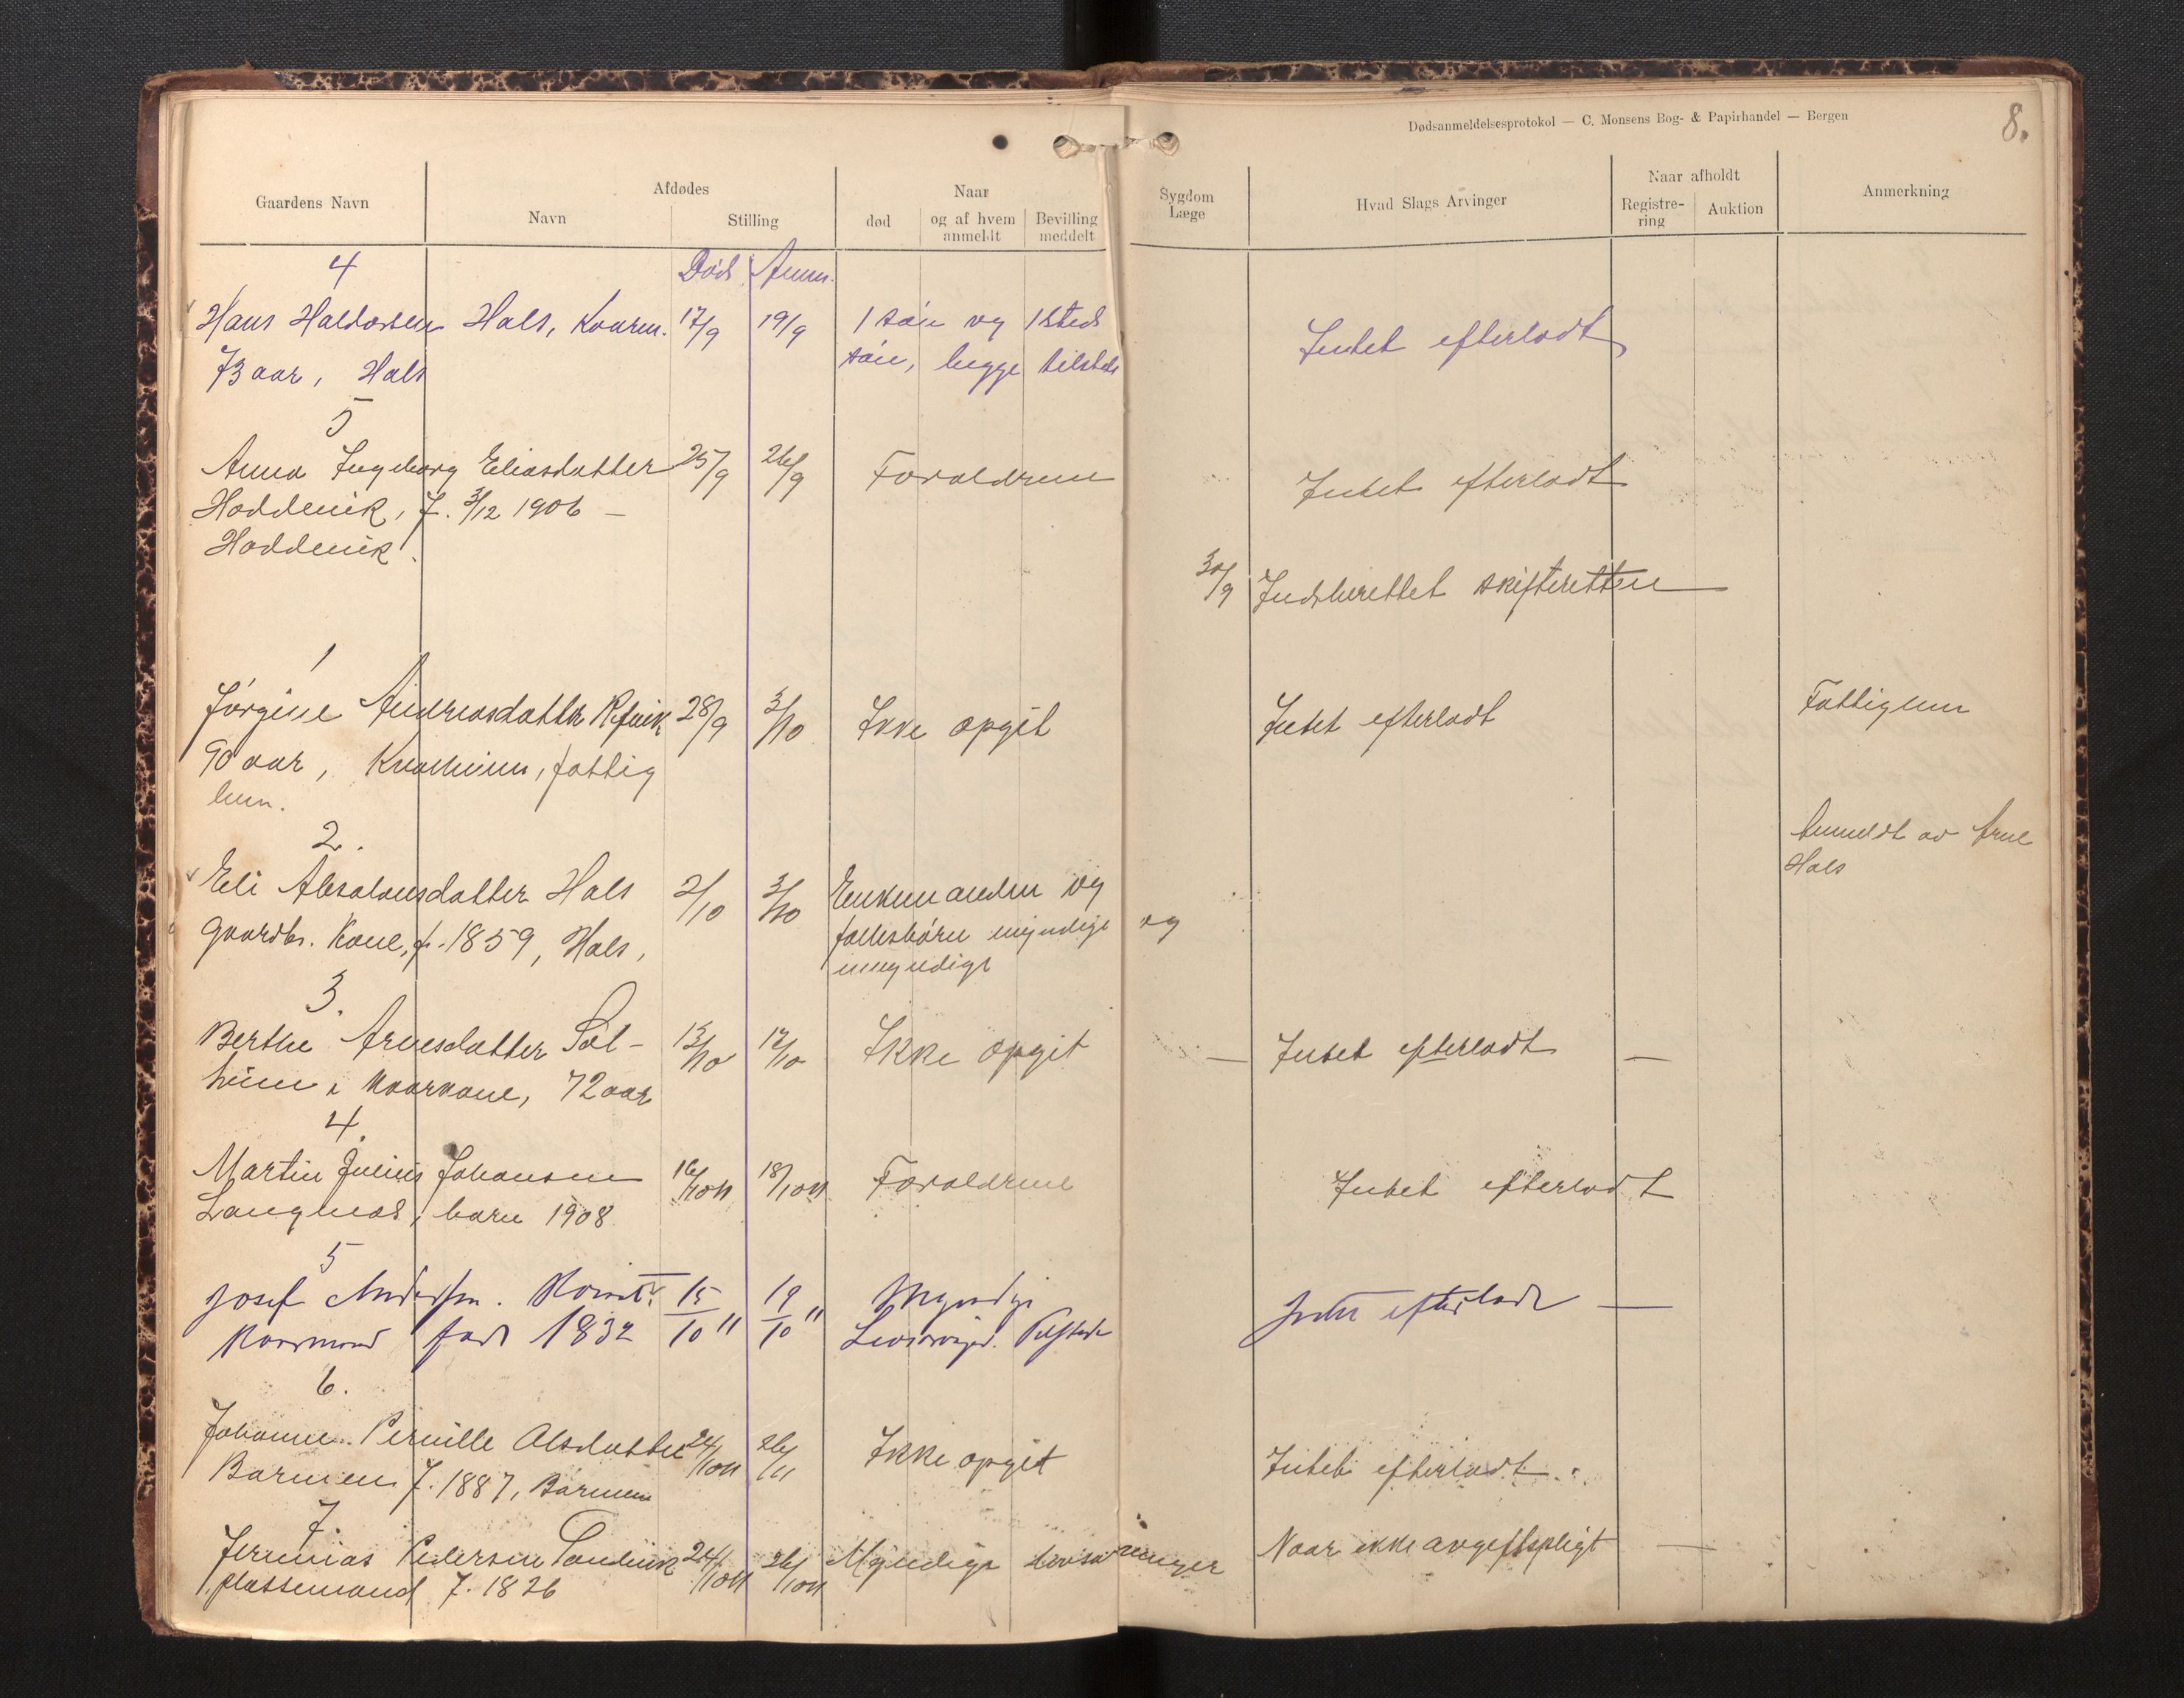 Dødsanmeldelsesprotokol — C. Monsens Bog- & Papirhandel — Bergen
8.
Gaardens Navn
Afdødes
Navn
Stilling
Naar
død
og af hvem anmeldt
Bevilling meddelt
Sygdom Læge
Hvad Slags Arvinger
Naar afholdt
Registre-ring
Auktion
Anmerkning
4
Død Anm.
Hans Haldorsen Hals, Kaarm. 17/9 19/9 1 søn og 1 sted
søn, begge tilsteds
Intet efterladt
73 aar, Hals
5
Anna Ingeborg Eliasdatter 25/9 26/9 Forældrene Intet efterladt
Hoddevik, f. 3/12 1906 —
Hoddevik.
30/9 Indberettet skifteretten
1
Jørgine Andreasdatter Refvik 28/9 3/10 Ikke opgit Intet efterladt Fattiglem
90 aar, fattig
lem.
2.
Anmeldt av Arne
Hals
Eli Absalonsdatter Hals 2/10 3/10 Enkemanden og
gaardbr. kone, f. 1859, Hals, fællesbørn myndige og
umyndige
3.
Berthe Arnesdatter Sol- 15/10 17/10 Ikke opgit — Intet efterladt —
heim, kaarkone, 72 aar
4.
Martin Julius Johansen 16/10 08 18/10 08 Forældrene Intet efterladt
Langnes, barn 1908
5
Josef 15/10 " 19/10 " Myndige Intet efterladt —
Kaarmand født 1832 Livsarving. Tilstede
6.
Johanne Pernille Olsdatter 24/10 08 26/11 Ikke opgit Intet efterladt.
Barmen f. 1887, Barmen
7.
Jeremias Pedersen Sandvik 24/10 08 26/10 08 Myndige livsarvinger Naar ikke avgiftspligt —
plassemand f. 1826